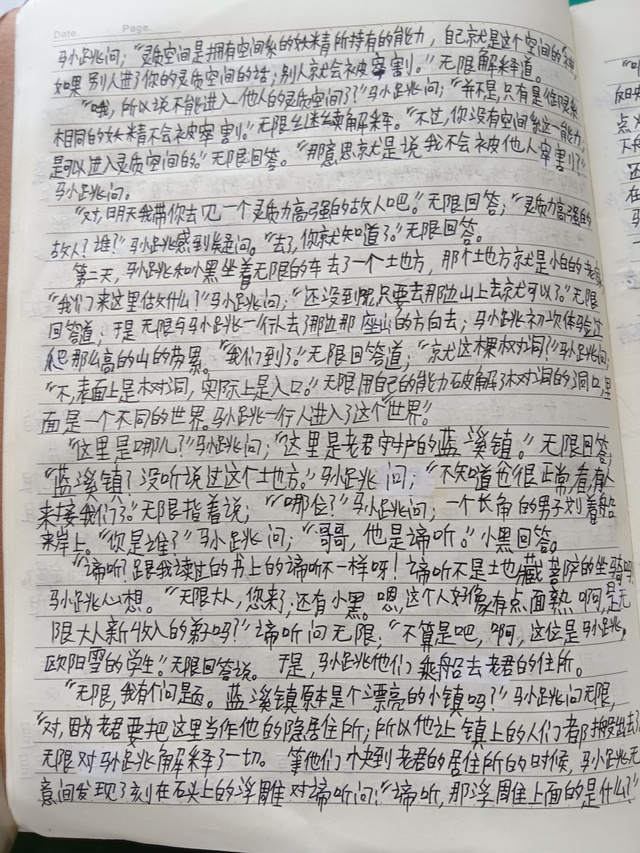 Date. Page.
马小跳问；“灵质空间是拥有空间系的妖精所持有的能力，自己就是这个空间的
如果别人进了你的灵质空间的话；别人就会被宰割。”无限解释道。
“哦，所以说不能进入他人的灵质空间了？”马小跳问；“并不是，只有是
相同的妖精不会被宰割。”无限继续解释。“不过，你没有空间系这一能力，
是可以进入灵质空间的。”无限回答。“那意思就是说我不会被他人宰割了？”
马小跳问。
“对，明天我带你去见一个灵质力高强的故人吧。”无限回答；“灵质力高强的
故人？谁？”马小跳感到疑问。“去了，你就知道了。”无限回答。
第二天，马小跳和小黑坐着无限的车去了一个地方，那个地方就是小白的老家
“我们来这里做什么？”马小跳问；“还没到呢，只要去那边山上去就可以了。”无限
回答道；于是无限与马小跳一行人去了那边那座山的方向去；马小跳初次体验过
爬那么高的山的劳累。“我们到了。”无限回答道；“就这棵树洞？”马小跳问；
“不，表面上是树洞，实际上是入口。”无限用自己的能力破解了树洞的洞口，里
面是一个不同的世界。马小跳一行人进入了这个世界。”
“这里是哪儿？”马小跳问；“这里是老君守护的蓝溪镇。”无限回答；
“蓝溪镇？没听说过这个土地方。”马小跳问；“不知道也很正常，看，有人
来接我们了。”无限指着说；“哪位？”马小跳问；一个长角的男子划着船
来岸上。“你是谁？”马小跳问；“哥哥，他是谛听。”小黑回答。
“谛听？跟我读过的书上的谛听不一样呀！谛听不是土地藏菩萨的坐骑吗
马小跳心想。“无限大人，您来了，还有小黑。嗯，这个人好像有点面熟啊，是无
限大人新收入的弟子吗？”谛听问无限；“不算是吧，啊，这位是马小跳，
欧阳雪的学生。”无限回答说。于是，马小跳他们乘船去老君的住所。
“无限，我有个问题。蓝溪镇原本是个漂亮的小镇吗？”马小跳问无限，
“对，因为老君要把这里当作他的隐居住所；所以他让镇上的人们都搬出去了
无限对马小跳解释了一切。等他们快到老君的居住所的时候，马小跳无
意间发现了刻在石头上的浮雕对谛听问：“谛听，那浮雕上面的是什么？”